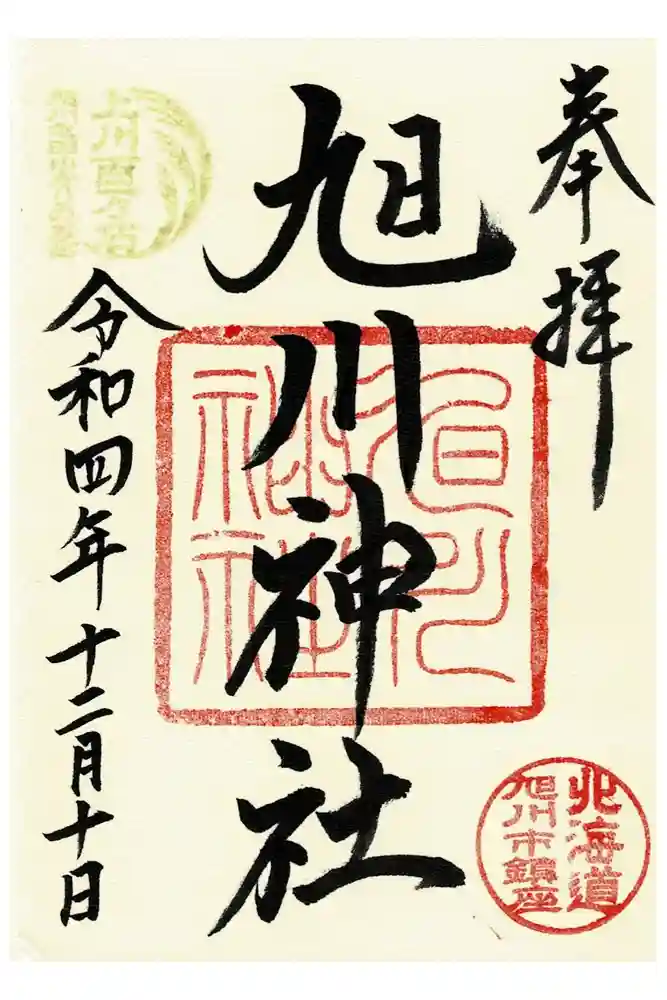 奉拝
旭川神社
令和四年十二月十日
旭川
神社
北海道
旭川市鎮座